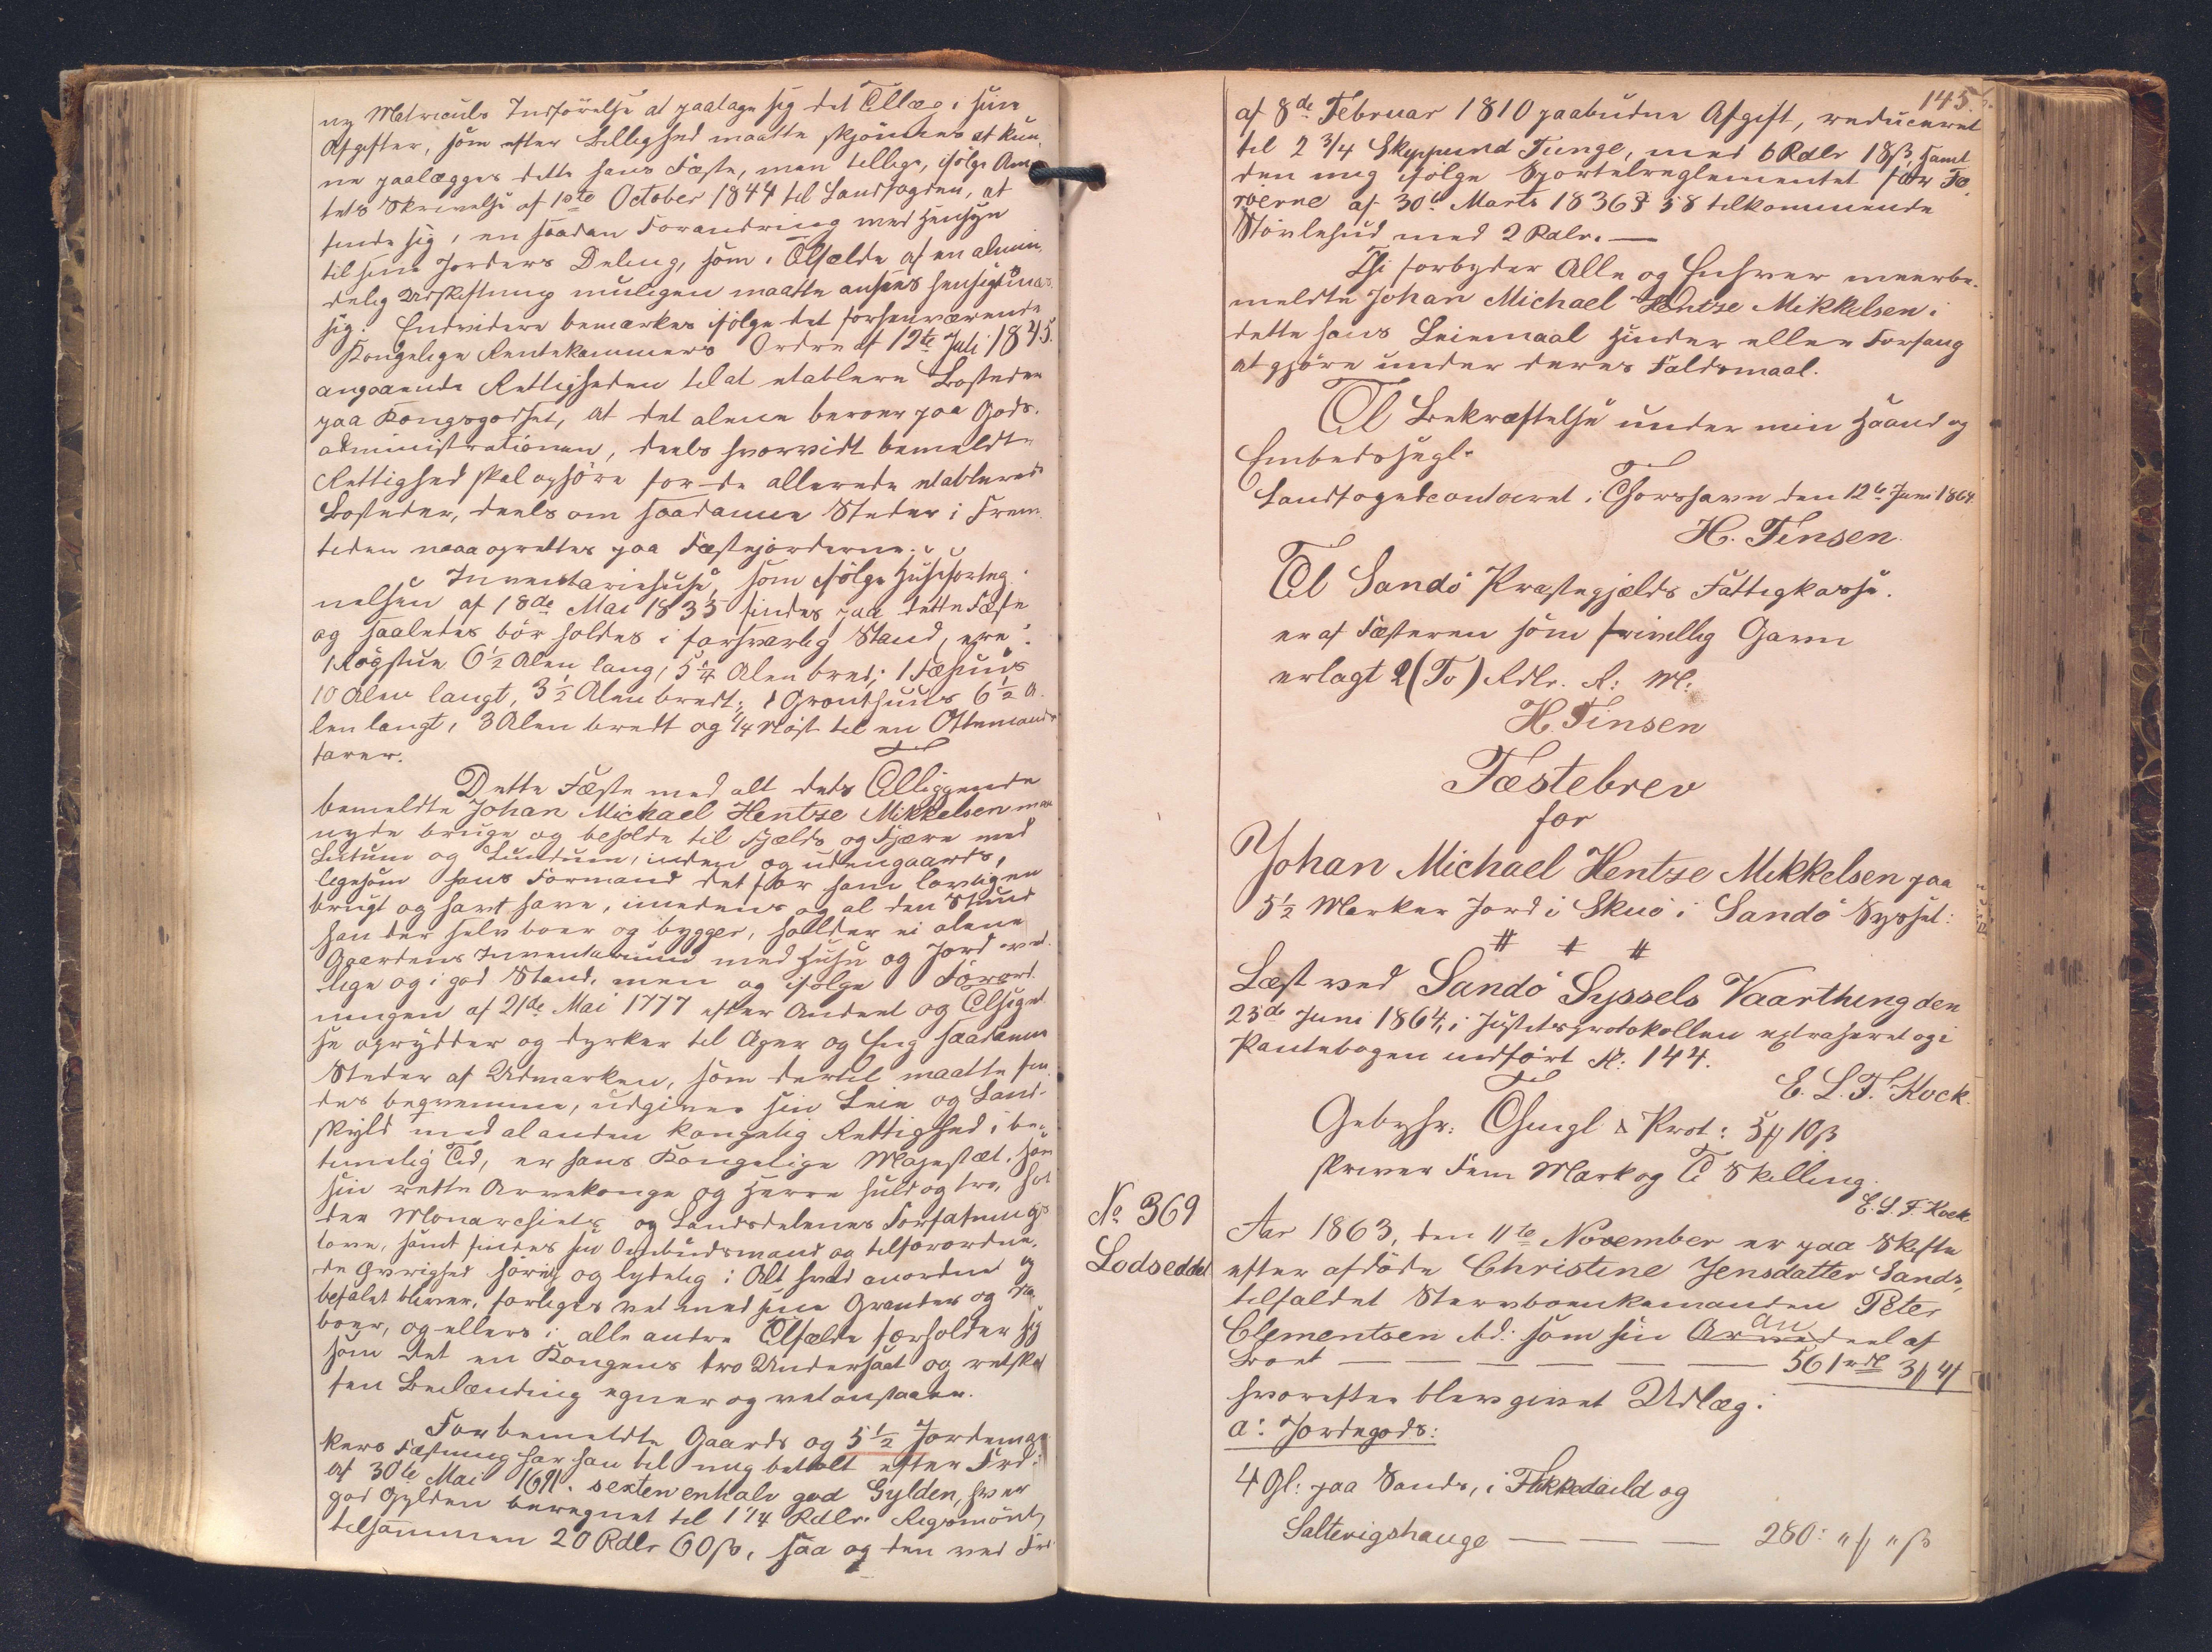 ny Matriculs Indførelse at paatage sig det Tillæg i sine
Afgifter, som efter Billighed maatte skjönnes at kun-
ne paalægges dette hans Fæste, men tillige, ifölge Am-
tets Skrivelse af 1ste October 1844 til Landfogden, at
finde sig i en saadan Forandring med Hensyn
til sine Jorders Deling, som i Tilfælde af en almin-
delig Udskiftning muligen maatte ansees hensigtmæs-
sig. Endvidere bemærkes ifölge det forhenværende
Kongelige Rentekammers Ordre af 12te Juli 1845.
angaaende Rettigheden til at etablere Bosteder
paa Kongsgodset, at det alene beroer paa Gods-
administrationen, deels hvorvidt bemeldte
Rettighed skal ophöre for de allerede etablerede
Bosteder, deels om saadanne Steder i Frem-
tiden maa oprettes paa Fæstejorderne.
Inventariehuse, som ifölge Huusforteg-
nelsen af 18de Mai 1835 findes paa dette Fæste
og saaledes bör holdes i forsvarlig Stand, ere:
1 Rögstue 6½ Alen lang, 5¼ Alen bred; 1 Fæhuus
10 Alen langt, 3½ Alen bredt; 1 Grønthuus 6½ A-
len langt, 3 Alen bredt og ¼ Nöst til en Ottemands-
farer.
Dette Fæste med alt dets Tilliggende
bemeldte Johan Michael Hentze Mikkelsen maa
nyde bruge og beholde til Fjelds og Fjære med
Lutum og Lundum, inden og udengaards,
ligesom hans Formand det för ham lovligen
brugt og havt have, imedens og al den Stund
han der selv boer og bygger, holder ei alene
Gaardens Inventarium med Huse og Jord ved-
lige og i god Stand, men og ifölge Forord-
ningen af 21de Mai 1777 efter Andeel og Tilsigel-
se oprydder og dyrker til Ager og Eng saadanne
Steder af Udmarken, som dertil maatte fin-
des beqvemme, udgiver sin Leie og Land-
skyld med al anden kongelig Rettighed i be-
timelig Tid, er hans Kongelige Majestæt, som
sin rette Arvekonge og Herre huld og tro, hol-
der Monarchiets og Landsdelenes Forfatnings-
love, samt findes sin Ombudsmand og tilforordne-
de Øvrighed hörig og lydelig i Alt hvad anordnet og
befalet bliver, forliges vel med sine Grander og Na-
boer, og ellers i alle andre Tilfælde forholder sig
som det en Kongens tro Undersaat og retskaf-
fen Beilænding egner og vel anstaaer.
Forbemeldte Gaards og 5½ Jordemar-
kers Fæstning har han til mig betalt efter Frd:
af 30te Mai 1691. sexten enhalv god Gylden, hver
god Gylden beregnet til 1¼ Rdlr. Rigsmönt,
tilsammen 20 Rdlr 60 ß, saa og den ved Frd
145.
af 8de Februar 1810 paabudne Afgift, reduceret
til 2¾ Skippund Tunge, med 6 Rdlr 18 ß, samt
den mig ifölge Sportelreglementet for Fæ-
röerne af 30te Marts 1836 § 58 tilkommende
Stövlehud med 2 Rdlr. —
Thi forbyder Alle og Enhver meerbe-
meldte Johan Michael Hentze Mikkelsen i
dette hans Leiemaal Hinder eller Forfang
at gjöre under deres Faldsmaal.
Til Bekræftelse under min Haand og
Embedssegl.
Landfogedcontoiret i Thorshavn den 12te Juni 1864
H. Finsen
Til Sandö Præstegjælds Fattigkasse.
er af Fæsteren som frivillig Gave
erlagt 2 (To) Rdlr. R: M:
H. Finsen
Fæstebrev
for
Johan Michael Hentze Mikkelsen paa
5½ Marker Jord i Skuö i Sandö Syssel:
# # #
Læst ved Sandö Syssels Vaarthing den
23de Juni 1864, i Justitsprotokollen extraheret og i
Pantebogen indfört N: 144.
E. L. T. Kock.
Gebyhr: Thingl & Prot: 5 ℔ 10 ß
skriver Fem Mark og Ti Skilling.
E. L. T. Kock
No 369
Lodseddel
Aar 1863, den 11te November er paa Skifte
efter afdöde Christine Jensdatter Sands,
tilfaldet Stervboenkemanden Peter
Clementsen ibd: som sin Andeel af
Boet — — — — — — 561 rdl 3 ℔ 4 ß
hvorefter blev givet Udlæg:
a: Jordegods:
4 Gl: paa Sands, i Trkkedaild og
Saltvigshauge — — — 280: " ℔ " ß